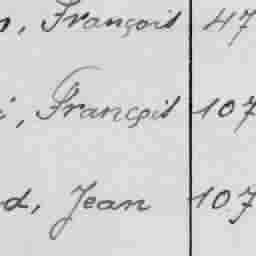 , François 47
, François 107
d, Jean 107